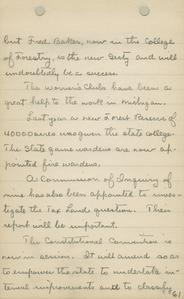 but Fred Baker, now in the College
of Forestry, is the new Secty and will
undoubtedly be a success.
The Women's Clubs have been a
great help to the work in Michigan.
Last year a new Forest Reserve of
40000 acres was given the state college.
The State game wardens are now ap-
pointed fire wardens.
A Commission of Inquiry of
nine has also been appointed to inves-
tigate the Tax Land question. Their
report will be important.
The Constitutional Convention is
now in session. It will amend so as
to empower the state to undertake in-
ternal improvements and to classify
61